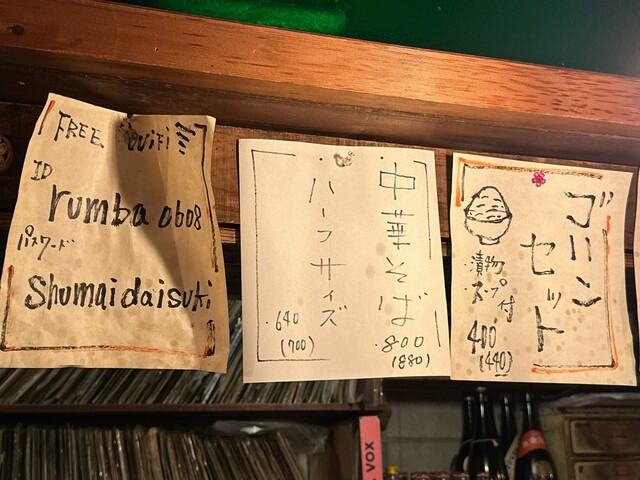 FREE WiFi
ID
rumba0608
パスワード
Shumaidaisuki
中華そば
・800
(880)
・ハーフサイズ
・640
(700)
ゴハン
セット
・漬物
・スープ付
400
(440)
VOX